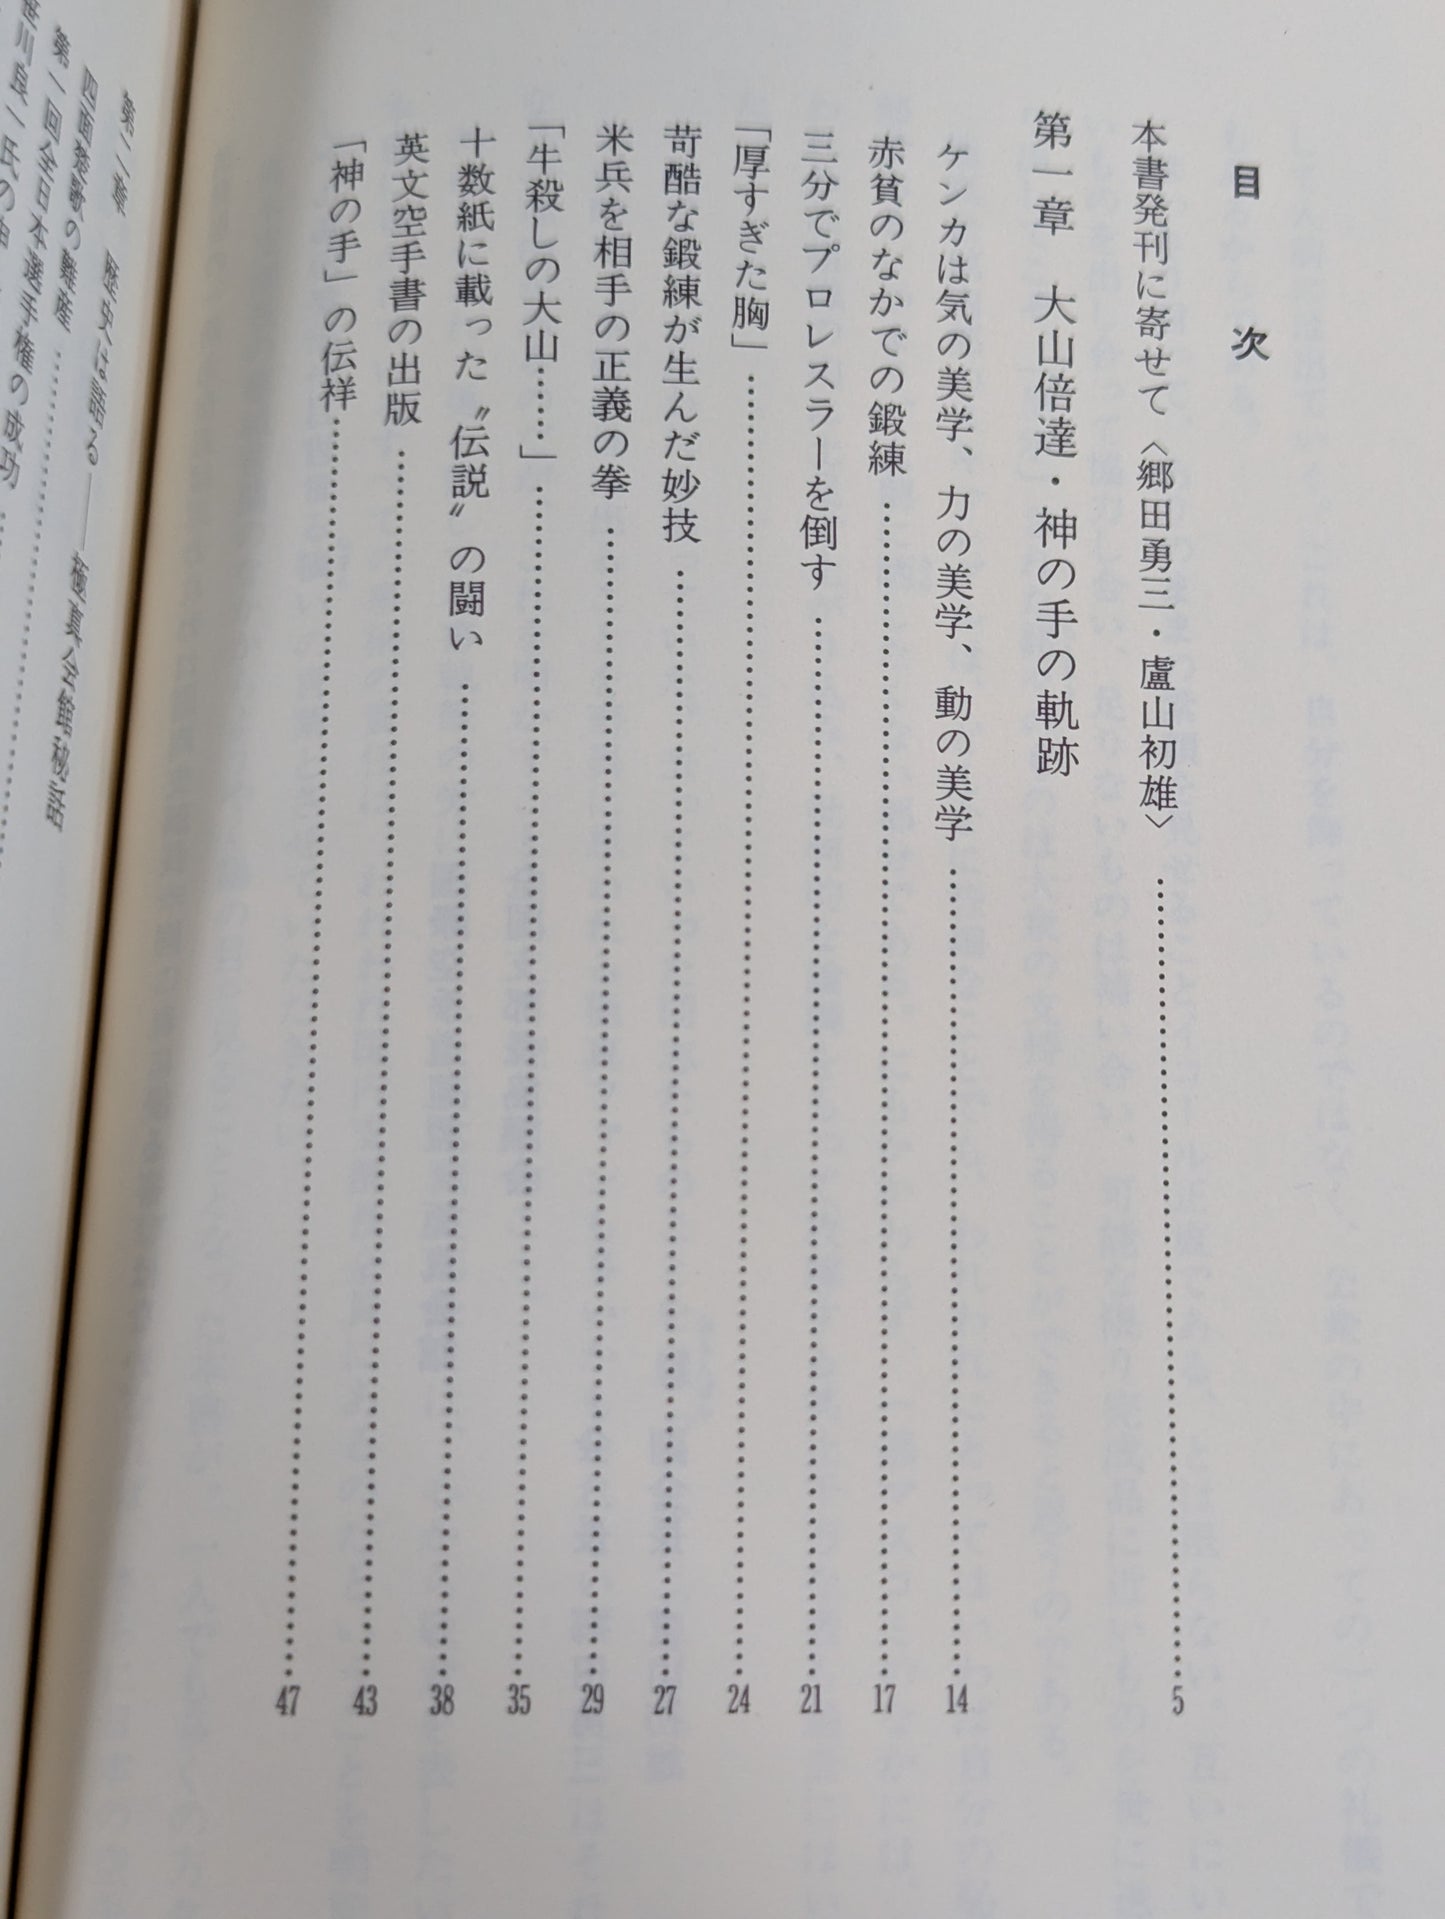 目次
本書発刊に寄せて〈郷田勇三・盧山初雄〉 5
第一章 大山倍達・神の手の軌跡
ケンカは気の美学、力の美学、動の美学 14
赤貧のなかでの鍛練 17
三分でプロレスラーを倒す 21
「厚すぎた胸」 24
苛酷な鍛練が生んだ妙技 27
米兵を相手の正義の拳 29
「牛殺しの大山……」 35
十数紙に載った〝伝説〟の闘い 38
英文空手書の出版 43
「神の手」の伝祥 47
第二章 歴史は語る――極真会館秘話
四面楚歌の難産
第一回全日本選手権の成功
笹川良一氏の